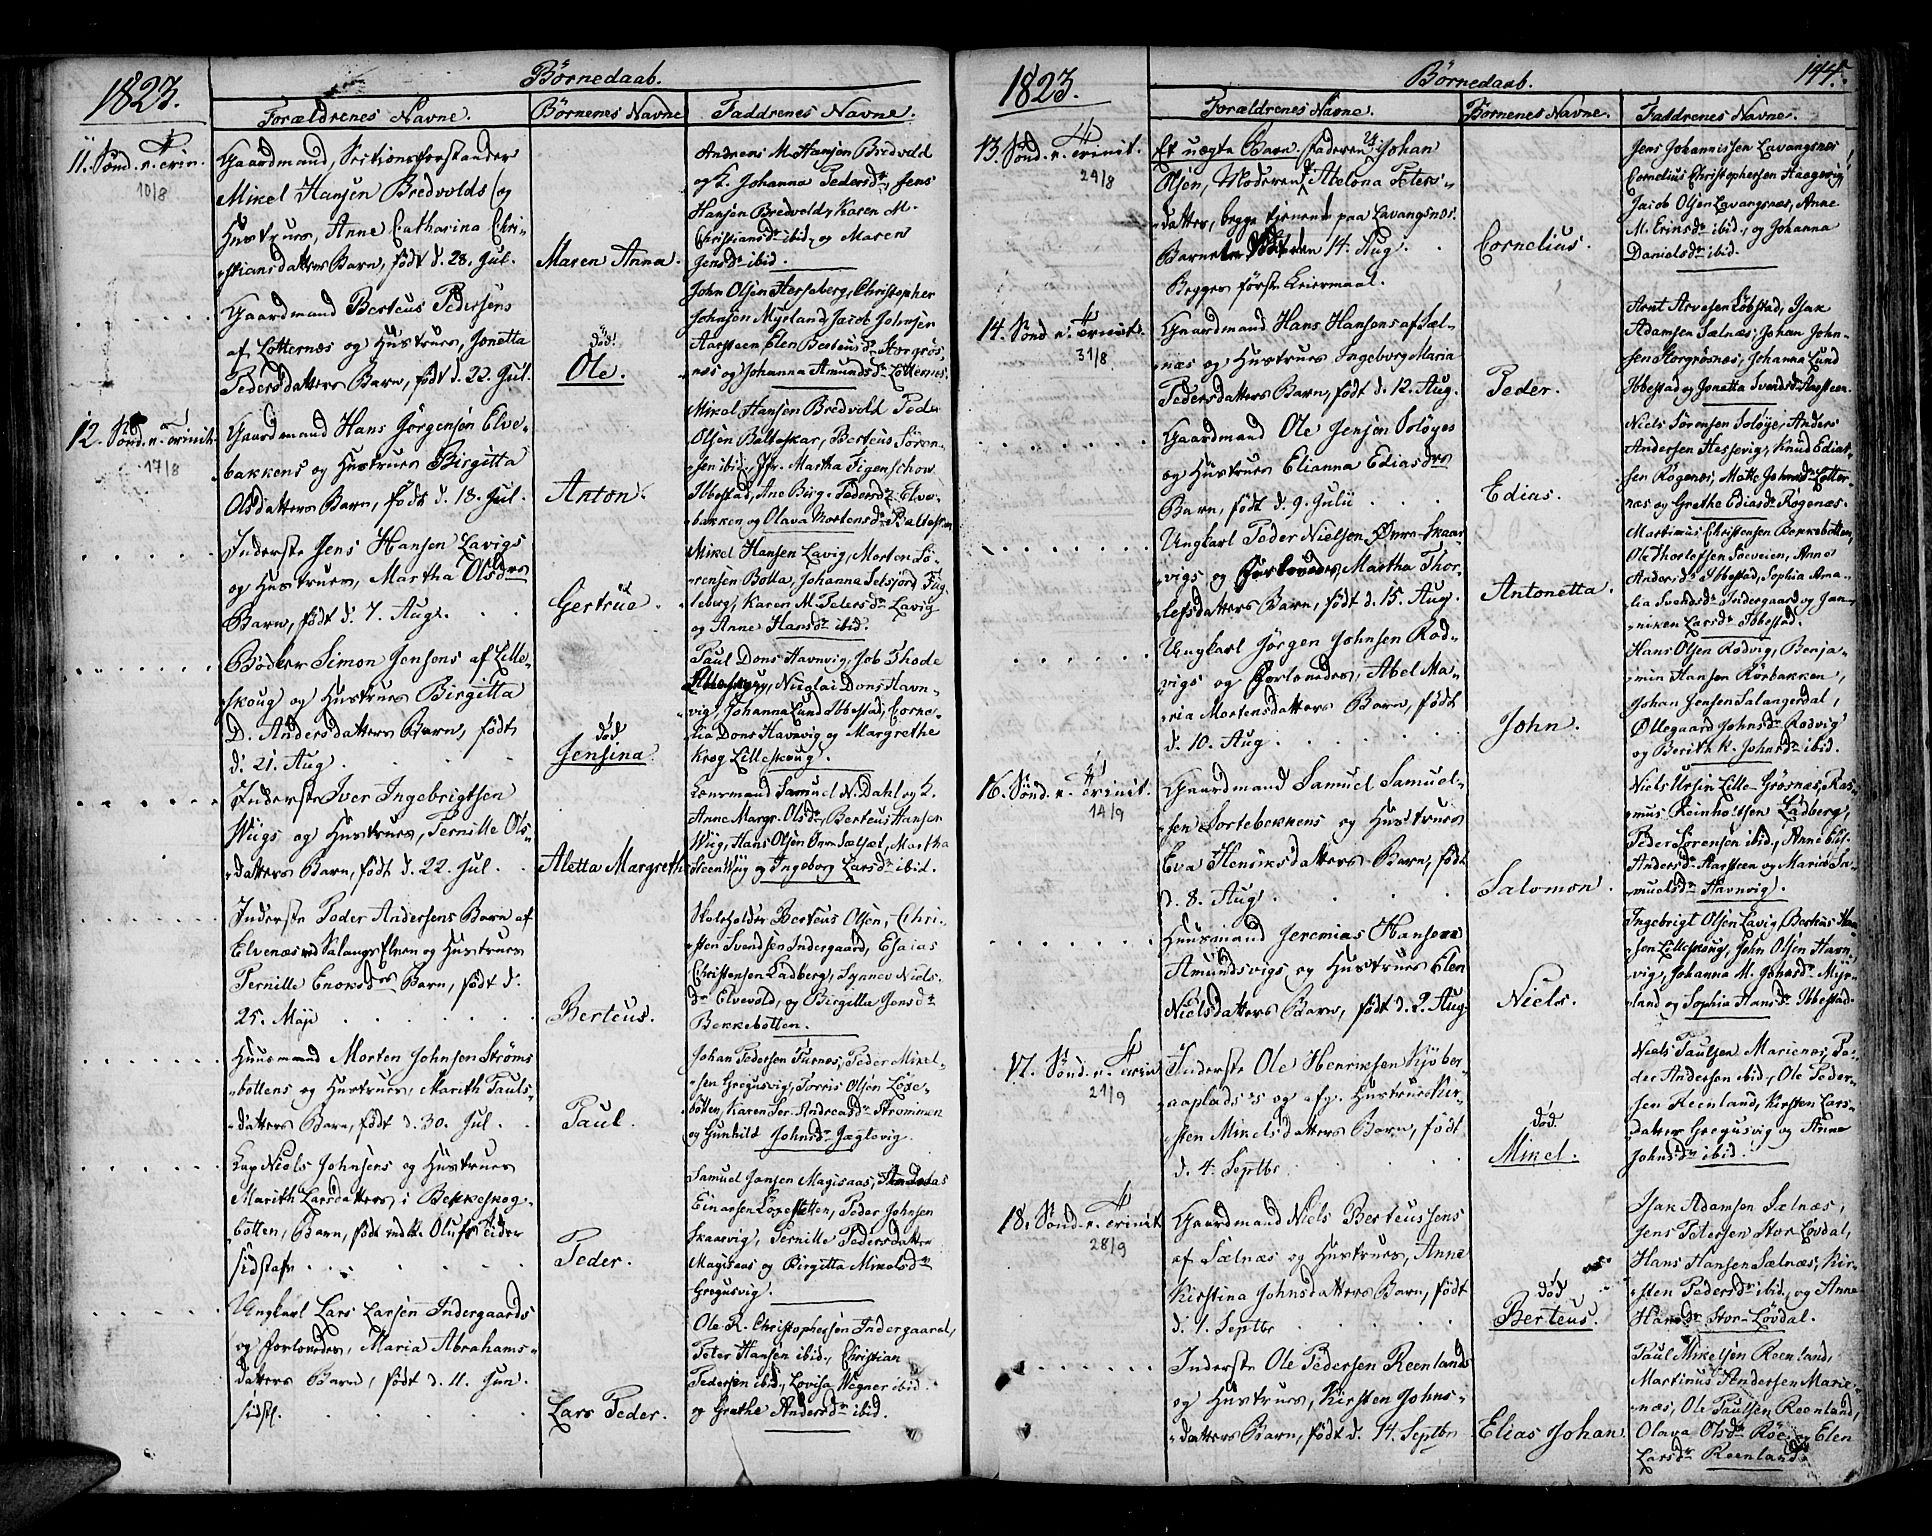 1823.
Börnedaab.
Forældrenes Navne.
Börnenes Navne
Faddrenes Navne.
11. Sønd. n. Trin.
10/8
Gaardmand, Sectionsforstander
Mikel Hansen Bredvolds og
Hustrues, Anne Catharina Chri-
stiansdatters Barn, født d. 28. Jul.
Maren Anna.
Andreas M. Hansen Bredvold
og K. Johanna Pedersdr, Jens
Hansen Bredvold, Karen M.
Christiansdr ibid, og Maren
Jensdr ibid.
Gaardmand Berteus Pedersens
af Lotternæs og Hustrues, Jonetta
Pedersdatters Barn, født d. 22. Jul.
død!
Ole.
John Olsen Hesseberg, Christopher
Johnsen Myrland, Jacob Johnsen
Aarsteen, Elen Berteusdr Storgrøs-
næs og Johanna Amundsdr Lotternes.
12. Sønd. n. Trinit.
17/8
Gaardmand Hans Jørgensen Elve-
bakkens og Hustrues Birgitta
Olsdatters Barn, født d. 18. Jul.
Anton.
Mikel Hansen Bredvold Peder
Olsen Balteskar, Berteus Sören-
sen ibid, Jfr. Martha Figenschow
Ibbestad, Ane Birg. Pedersdr Elve-
bakken og Olava Mortensdr Balteskar
Inderste Jens Hansen Lavigs
og Hustrues, Martha Olsdrs
Barn, født d. 7. Aug.
Gertrue.
Mikel Hansen Lavig, Morten Sö-
rensen Bolla, Johanna Setsjord Fug-
leberg, Karen M. Petersdr Lavig
og Anne Hansdr ibid.
Bødker Simon Jensens af Lille-
skoug og Hustrues Birgitta
D. Andersdatters Barn, født
d. 21. Aug.
død
Jensina.
Paul Dons Havnvig, Job Thode
Nicolai Dons Havn-
vig, Johanna Lund Ibbestad, Corne-
lia Dons Havnvig og Margrethe
Krog Lilleskoug.
Inderste Iver Ingebrigtsen
Wiigs og Hustrues, Pernille Ols-
datters Barn, født d. 22. Jul.
Aletta Margreth
Lensmand Samuel N. Dahl og K.
Anne Margr. Olsdr, Berteus Hansen
Wiig, Hans Olsen Øvre Sælset, Martha
Steen Wiig og Ingeborg Larsdr ibid.
Inderste Peder Andersens Barn af
Elvenæs ved Salangs Elven og Hustrues
Pernille Enoksdrs Barn, født d.
25. Maji
Berteus.
Skoleholder Berteus Olsen, Chri-
sten Svendsen Indergaard, Esaias
Christensen Ladberg, Synnev Niels-
dr Elvevold, og Birgitta Jonsdr
Bekkebotten.
Huusmand Morten Johnsen Ströms-
bottens og Hustrues, Marith Pauls-
datters Barn, født d. 30. Jul.
Paul.
Johan Pedersen Furnes, Peder Mikel-
sen Gregusvig, Torris Olsen Löxe-
botten, Karen Ser. Andreasdr Strømmen
og Gunhild Johnsdr Jægtevig.
Lap Niels Johnsens og Hustrues
Marith Larsdatters i Bekkeskog-
botten, Barn, født ved St. Olufs Tider
sidstafv.
Peder.
Samuel Jonsen Magisaas, Andreas
Einarsen Löxebotten, Peder Johnsen
Skaarvig, Pernille Pedersdatter
Magisaas og Birgitta Mikelsdr
Gregusvig.
Ungkarl Lars Larsen Indergaards
og Forlovedes, Maria Abrahams-
datters Barn, født d. 11. Jun.
sidstl.
Lars Peder.
Ole R. Christophersen Indergaard,
Peter Hansen ibid., Christian
Pedersen ibid., Lovisa Wegner ibid.
og Grethe Andersdr ibid.
1823.
Börnedaab.
144.
Forældrenes Navne.
Börnenes Navne.
Faddrenes Navne.
13. Sønd. n. Trinit.
24/8
Et uægte Barn. Faderen Uk. Johan
Olsen, Moderen P. Abelona Peters-
datter, begge tjenende paa Lavangsnes.
Barnet født den 14. Aug.
Begges første Leiermaal.
Cornelius.
Jens Johannissen Lavangsnes,
Cornelius Christophersen Haagevig,
Jacob Olsen Lavangsnæs, Anne
M. Erinsdr ibid., og Johanna
Danielsdr ibid.
14. Sønd. n. Trinit.
31/8
Gaardmand Hans Hansens af Sæl-
næs og Hustrues Ingeborg Maria
Pedersdatters Barn, født d. 12. Aug.
Peder.
Arnt Arvesen Löbstad, Isak
Adamsen Sælnæs, Johan John-
sen Storgrösnæs, Johanna Lund
Ibbestad og Jonetta Svendsdr Aarsteen.
Gaardmand Ole Jensen Soløyes
og Hustrues Elianna Ediasdrs
Barn, født d. 9. Julii
Edias.
Niels Sörensen Soløye, Anders
Andersen Hessevig, Knud Edias-
sen Rogenæs, Mette Johnsdr Lotter-
næs og Grethe Ediasdr Rogenæs.
Ungkarl Peder Nielsen Øvre-Skaar-
vigs og Forlovedes Martha Thor-
lefsdatters Barn, født d. 15. Aug.
Antonetta.
Martinus Christensen Bekkebotten,
Ole Thorlefsen Sørveien, Anne
Andersdr Ibbestad, Sophia Ama-
lia Svendsdr Indergaard og Jan-
niken Larsdr Ibbestad.
Ungkarl Jørgen Johnsen Rod-
vigs og Forlovedes, Abel Ma-
ria Mortensdatters Barn, født
d. 10. Aug.
John.
Hans Olsen Rodvig, Benja-
min Hansen Rörbakken,
Johan Jensen Salangerdal,
Øllegaard Johnsdr Rodvig
og Berith K. Johnsdr ibid.
16. Sønd. n. Trinit.
14/9
Gaardmand Samuel Samuel-
sen Sortebekkens og Hustrues
Eva Henriksdatters Barn, født
d. 8. Aug.
Salomon.
Niels Ursin Lille-Grøsnæs, Ras-
mus Reinholtsen Ladberg,
Peder Sørensen ibid., Anne Elis.
Andersdr Aarsteen og Maria Sa-
muelsdr Havnvig.
Huusmand Jeremias Hansens
Amundsvigs og Hustrues Elen
Nielsdatters Barn, født d. 2. Aug.
Niels.
Ingebrigt Olsen Lavig, Berteus Han-
sen Lilleskoug, John Olsen Havn-
vig, Johanna M. Johnsdr Myr-
land og Sophia Hansdr Ibbestad.
17. Sønd. n. Trin.
21/9
Inderste Ole Henriksen Kjöber-
aaplads's og afg. Hustrue Kir-
sten Mikelsdatters Barn, født
d. 4. Septbr.
død.
Mikel.
Niels Paulsen Marienæs, Pe-
der Andersen ibid., Ole Peder-
sen Reenland, Kirsten Lars-
datter Gregusvig og Anna
Johnsdr ibid.
18. Sønd. n. Trinit.
28/9
Gaardmand Niels Berteussens
af Sælnæs og Hustrues, Anne
Kirstina Johnsdatters Barn, født
d. 1. Septbr
død
Berteus.
Isak Adamsen Sælnæs,
Jens Petersen Stor-Lövdal,
Hans Hansen Sælnæs, Kir-
sten Pedersdr ibid., og Anne
Hansdr Stor-Lövdal.
Inderste Ole Pedersen Reenlands
og Hustrues, Kirsten Johns-
datters Barn, født d. 14. Septbr
Elias Johan
Paul Mikelsen Reenland,
Martinus Andersen Marie-
næs, Ole Paulsen Reenland,
Olava Olsdr Röe og Elen
Larsdr Reenland.